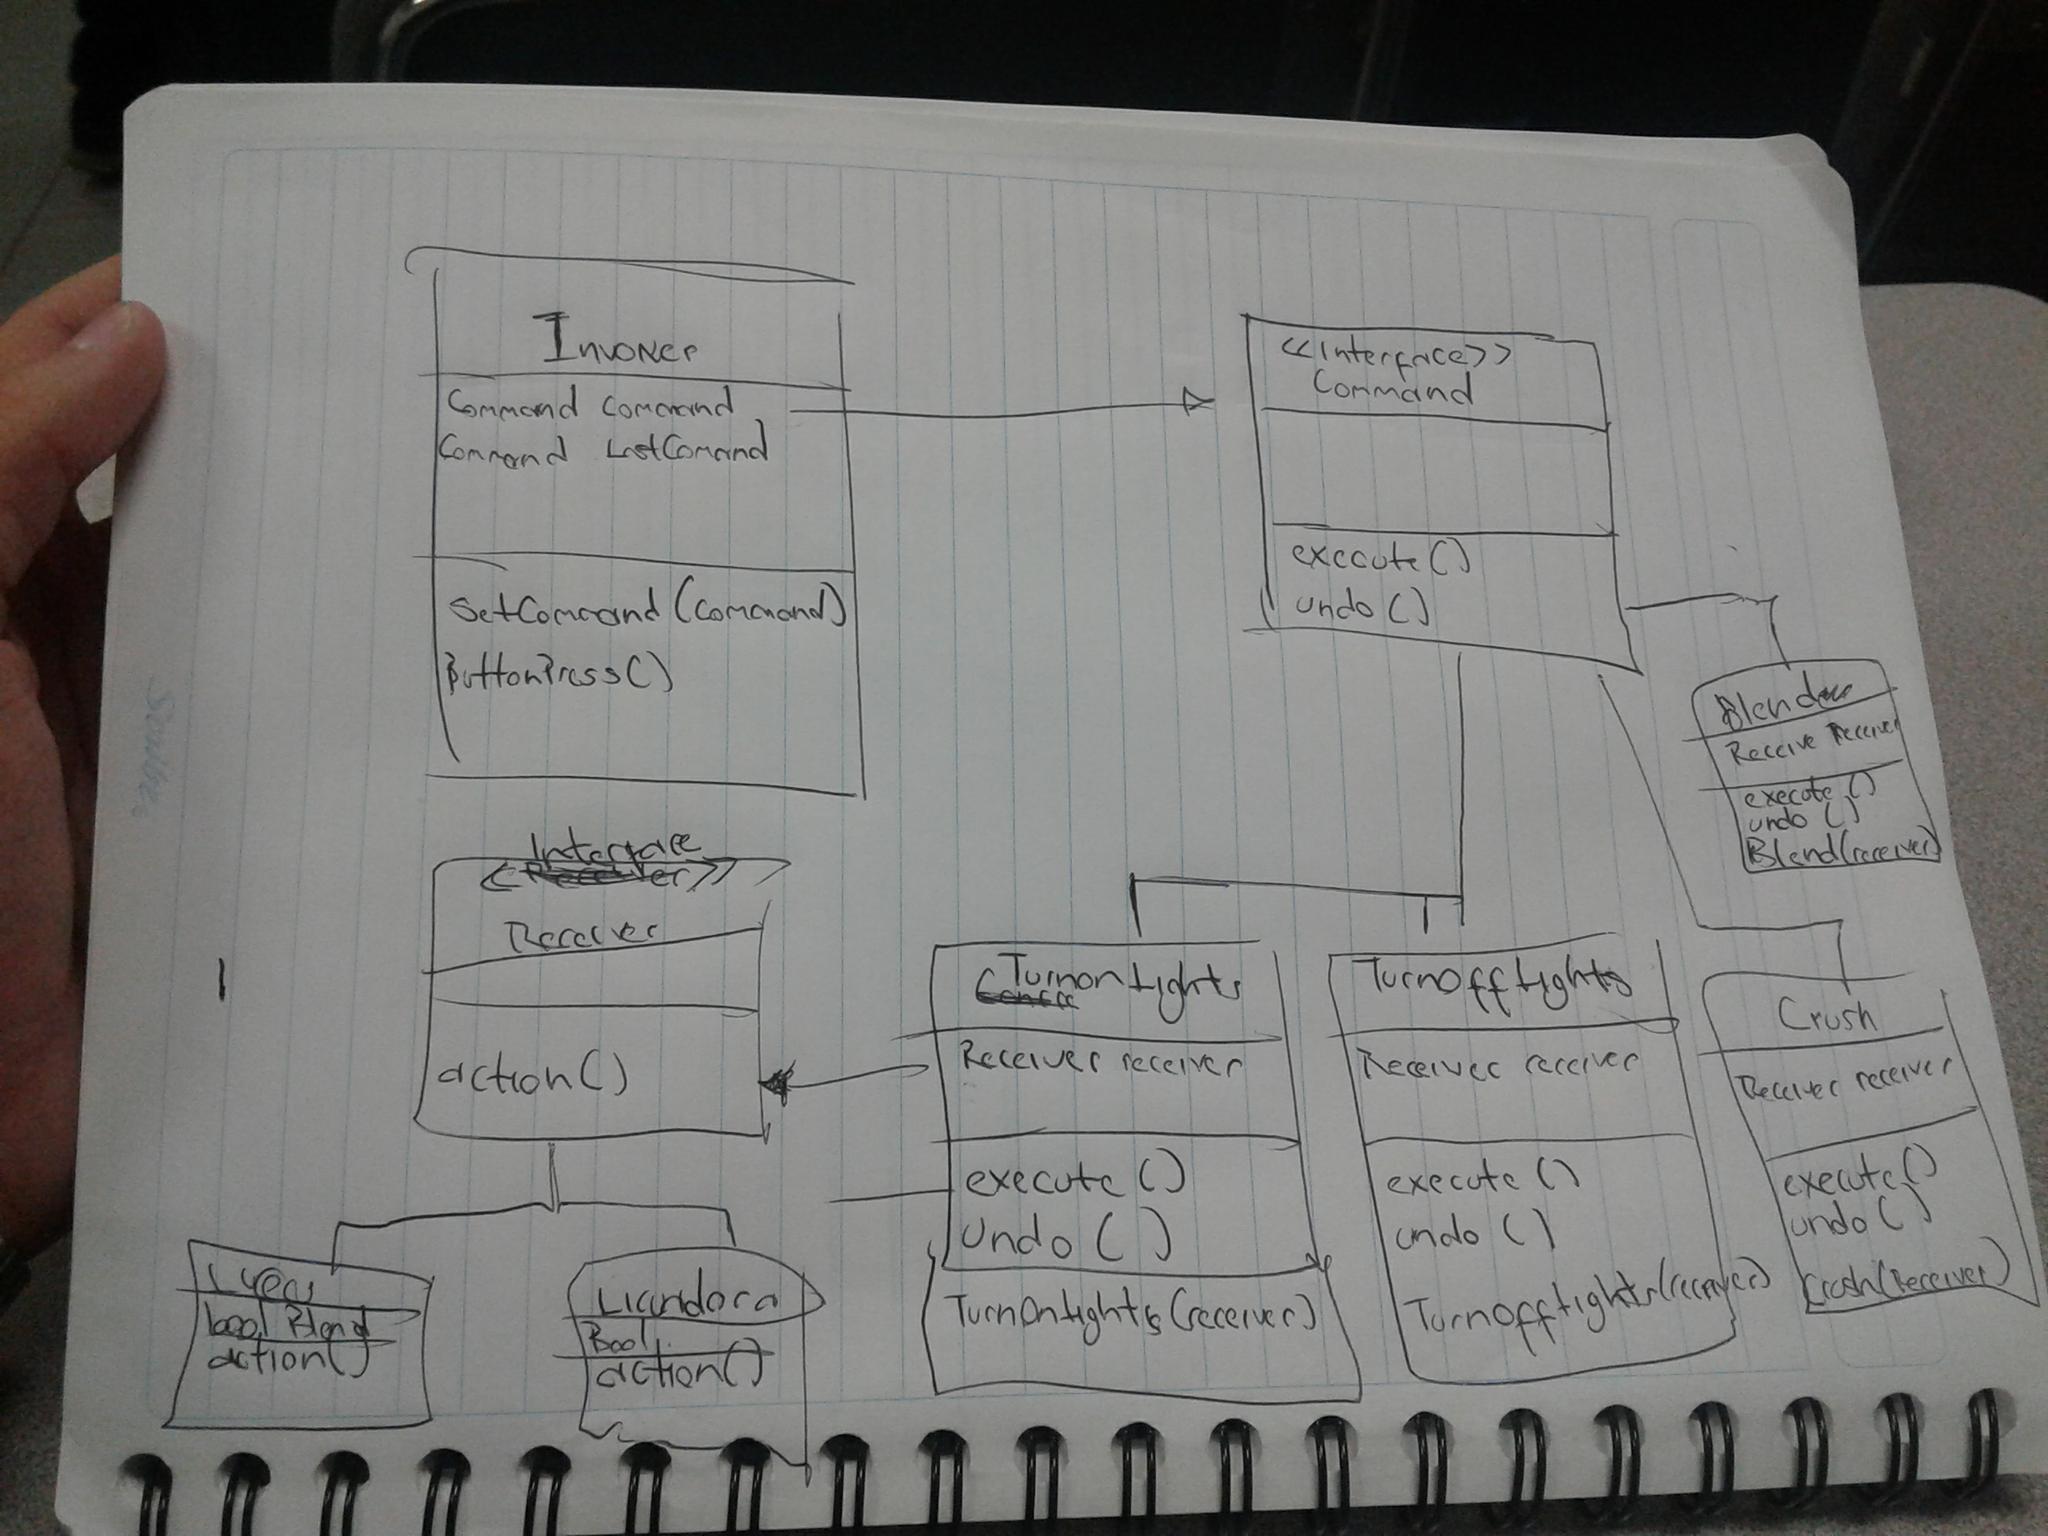 Invoker
Command comand
Command LastComand
SetCommand (Command)
ButtonPress()
<<Interface>>
Command
execute()
undo()
Receive Receiver
execute()
undo()
Blend(receiver)
Interface
Receiver
action()
TurnonLights
Receiver receiver
execute()
undo()
TurnOnLights(receiver)
TurnOffLights
Receiver receiver
execute()
undo()
TurnoffLights(receiver)
Crush
Receiver receiver
execute()
undo()
Crush(Receiver)
bool Blend
action()
Licuadora
Bool
action()
Scribe